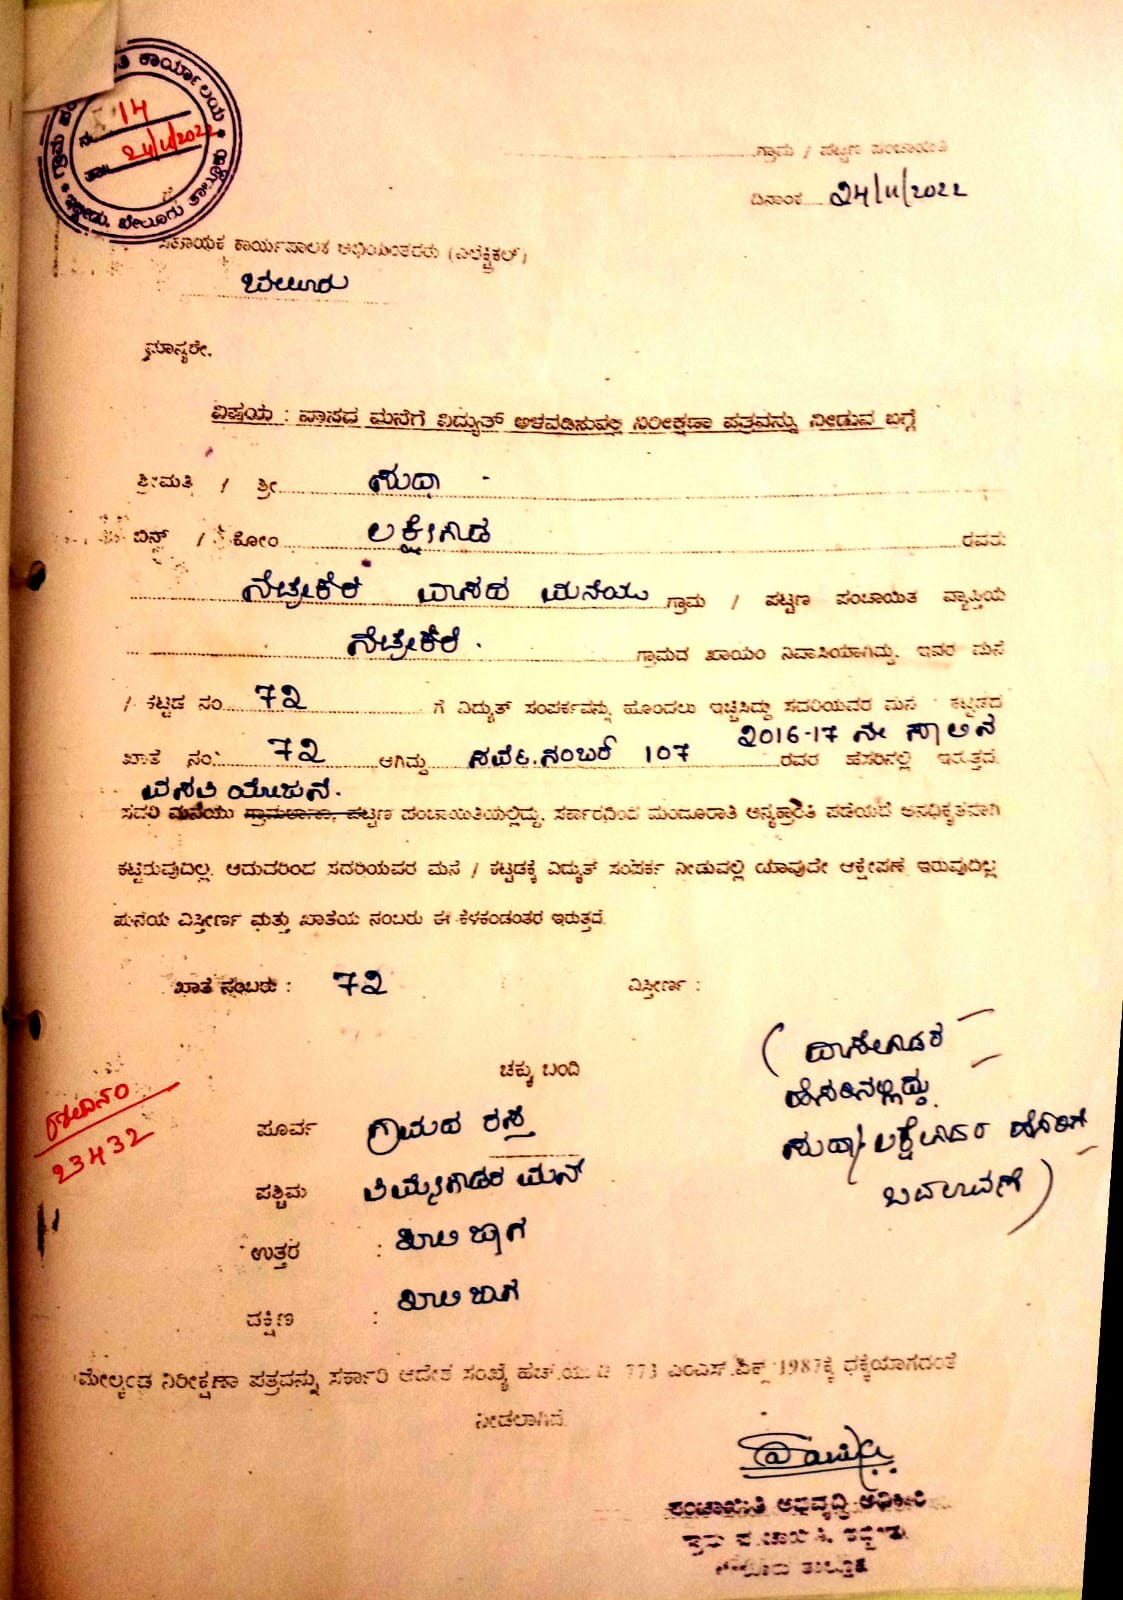 ಕಾರ್ಯಾಲಯ
ನಂ. 14
ತಾ: 24/11/2022
ಗ್ರಾಮ / ಪಟ್ಟಣ ಪಂಚಾಯತಿ
ದಿನಾಂಕ 24/11/2022
ಸಹಾಯಕ ಕಾರ್ಯಪಾಲಕ ಅಭಿಯಂತರರು (ಎಲೆಕ್ಟ್ರಿಕಲ್)
ಬೇಲೂರು
ಮಾನ್ಯರೇ,
ವಿಷಯ : ವಾಸದ ಮನೆಗೆ ವಿದ್ಯುತ್ ಅಳವಡಿಸುವಲ್ಲಿ ನಿರೀಕ್ಷಣಾ ಪತ್ರವನ್ನು ನೀಡುವ ಬಗ್ಗೆ
ಶ್ರೀಮತಿ / ಶ್ರೀ ಸುಧಾ
ಬಿನ್ / ಕೋಂ ಲಕ್ಷ್ಮೇಗೌಡ ರವರು
ನೆಟ್ಟೇಕೆರೆ ವಾಸದ ಮನೆಯು ಗ್ರಾಮ / ಪಟ್ಟಣ ಪಂಚಾಯಿತ ವ್ಯಾಪ್ತಿಯ
ನೆಟ್ಟೇಕೆರೆ. ಗ್ರಾಮದ ಖಾಯಂ ನಿವಾಸಿಯಾಗಿದ್ದು, ಇವರ ಮನೆ
/ ಕಟ್ಟಡ ನಂ 72 ಗೆ ವಿದ್ಯುತ್ ಸಂಪರ್ಕವನ್ನು ಹೊಂದಲು ಇಚ್ಛಿಸಿದ್ದು ಸದರಿಯವರ ಮನೆ / ಕಟ್ಟಡದ
ಖಾತೆ ನಂ: 72 ಆಗಿದ್ದು ಸರ್ವೆ.ನಂಬರ್ 107 2016-17 ನೇ ಸಾಲಿನ ರವರ ಹೆಸರಿನಲ್ಲಿ ಇರುತ್ತದೆ.
ವಸತಿ ಯೋಜನೆ.
ಸದರಿ ಮನೆಯು ಗ್ರಾಮಠಾಣಾ, ಪಟ್ಟಣ ಪಂಚಾಯಿತಿಯಲ್ಲಿದ್ದು, ಸರ್ಕಾರದಿಂದ ಮಂಜೂರಾತಿ ಪಡೆಯದೆ ಅನಧಿಕೃತವಾಗಿ
ಕಟ್ಟಿರುವುದಿಲ್ಲ. ಆದುದರಿಂದ ಸದರಿಯವರ ಮನೆ / ಕಟ್ಟಡಕ್ಕೆ ವಿದ್ಯುತ್ ಸಂಪರ್ಕ ನೀಡುವಲ್ಲಿ ಯಾವುದೇ ಆಕ್ಷೇಪಣೆ ಇರುವುದಿಲ್ಲ
ಮನೆಯ ವಿಸ್ತೀರ್ಣ ಮತ್ತು ಖಾತೆಯ ನಂಬರು ಈ ಕೆಳಕಂಡಂತರ ಇರುತ್ತದೆ.
ಖಾತೆ ನಂಬರು : 72 ವಿಸ್ತೀರ್ಣ :
ಚಕ್ಕುಬಂದಿ
ಪೂರ್ವ ಗ್ರಾಮದ ರಸ್ತೆ
ಪಶ್ಚಿಮ ತಿಮ್ಮೇಗೌಡರ ಮನೆ
ಉತ್ತರ : ಖಾಲಿ ಜಾಗ
ದಕ್ಷಿಣ : ಖಾಲಿ ಜಾಗ
( ದಾಸೇಗೌಡರ
ಹೆಸರಿನಲ್ಲಿದ್ದು
ಸುಧಾ/ಲಕ್ಷ್ಮೇಗೌಡರ ಹೆಸರಿಗೆ
ಬದಲಾವಣೆ )
23432
ಮೇಲ್ಕಂಡ ನಿರೀಕ್ಷಣಾ ಪತ್ರವನ್ನು ಸರ್ಕಾರಿ ಆದೇಶ ಸಂಖ್ಯೆ ಹೆಚ್.ಯು.ಡಿ 773 1987ಕ್ಕೆ ಧಕ್ಕೆಯಾಗದಂತೆ
ನೀಡಲಾಗಿದೆ.
ಪಂಚಾಯಿತಿ ಅಭಿವೃದ್ಧಿ ಅಧಿಕಾರಿ